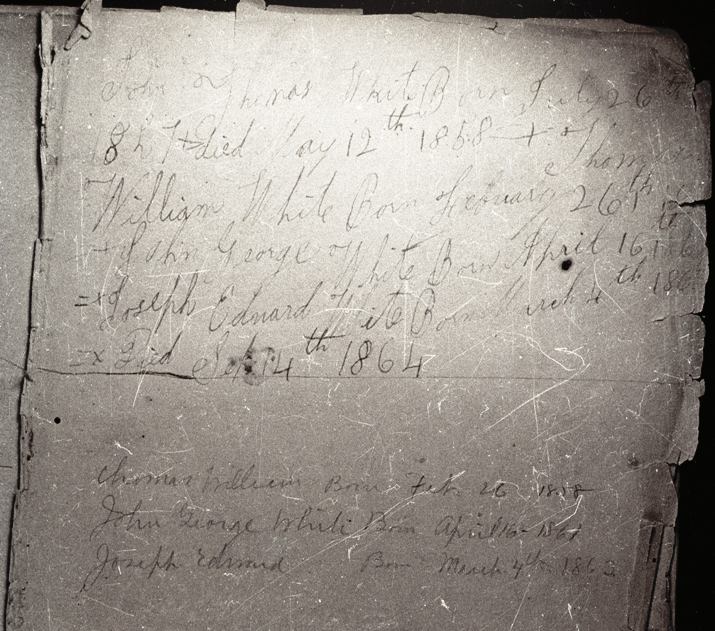 John Thomas White Born July 26th
18 died May 12th 1858 + Thomas
William White Born Febuary 26th
John George White Born April 16
=x Joseph Edward White Born March 4th 186
=x Died Sept 14th 1864
Thomas William Born Feb. 26 1858
John George White Born April 16 186
Joseph Edmund Born March 4th 186